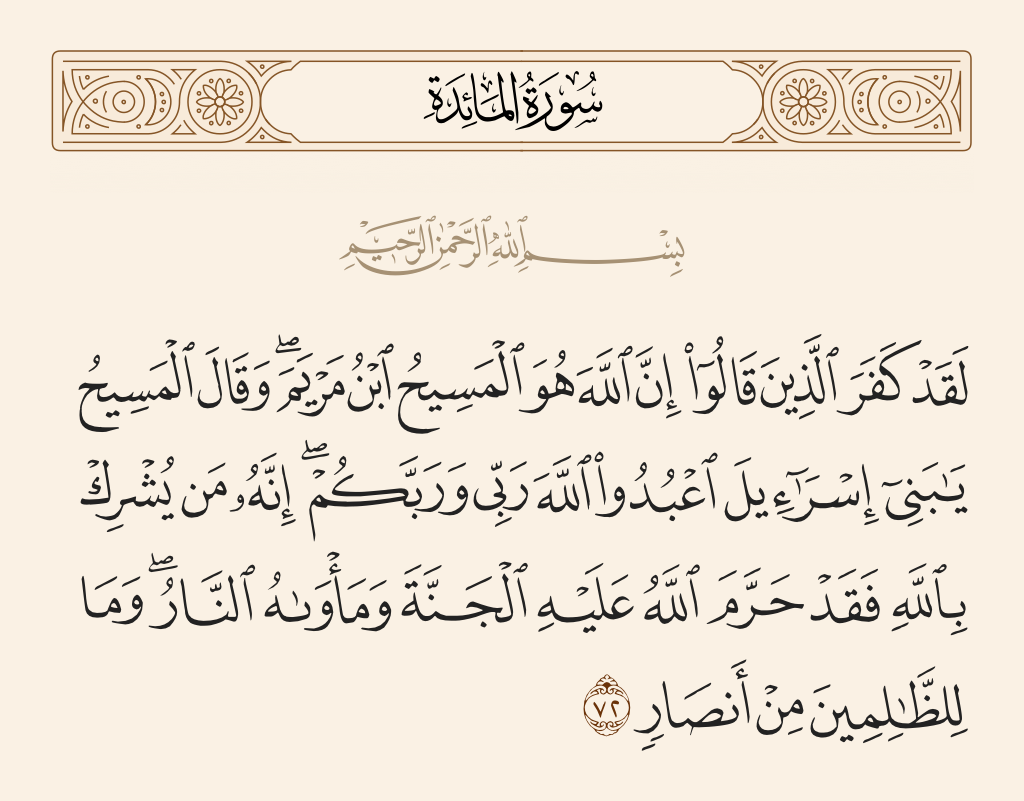 سُورَةُ المَائِدَةِ
بِسْمِ ٱللَّهِ ٱلرَّحْمَٰنِ ٱلرَّحِيمِ
لَقَدْ كَفَرَ ٱلَّذِينَ قَالُوٓا۟ إِنَّ ٱللَّهَ هُوَ ٱلْمَسِيحُ ٱبْنُ مَرْيَمَ ۖ وَقَالَ ٱلْمَسِيحُ
يَـٰبَنِىٓ إِسْرَٰٓءِيلَ ٱعْبُدُوا۟ ٱللَّهَ رَبِّى وَرَبَّكُمْ ۖ إِنَّهُۥ مَن يُشْرِكْ
بِٱللَّهِ فَقَدْ حَرَّمَ ٱللَّهُ عَلَيْهِ ٱلْجَنَّةَ وَمَأْوَىٰهُ ٱلنَّارُ ۖ وَمَا
لِلظَّـٰلِمِينَ مِنْ أَنصَارٍ ٧٢